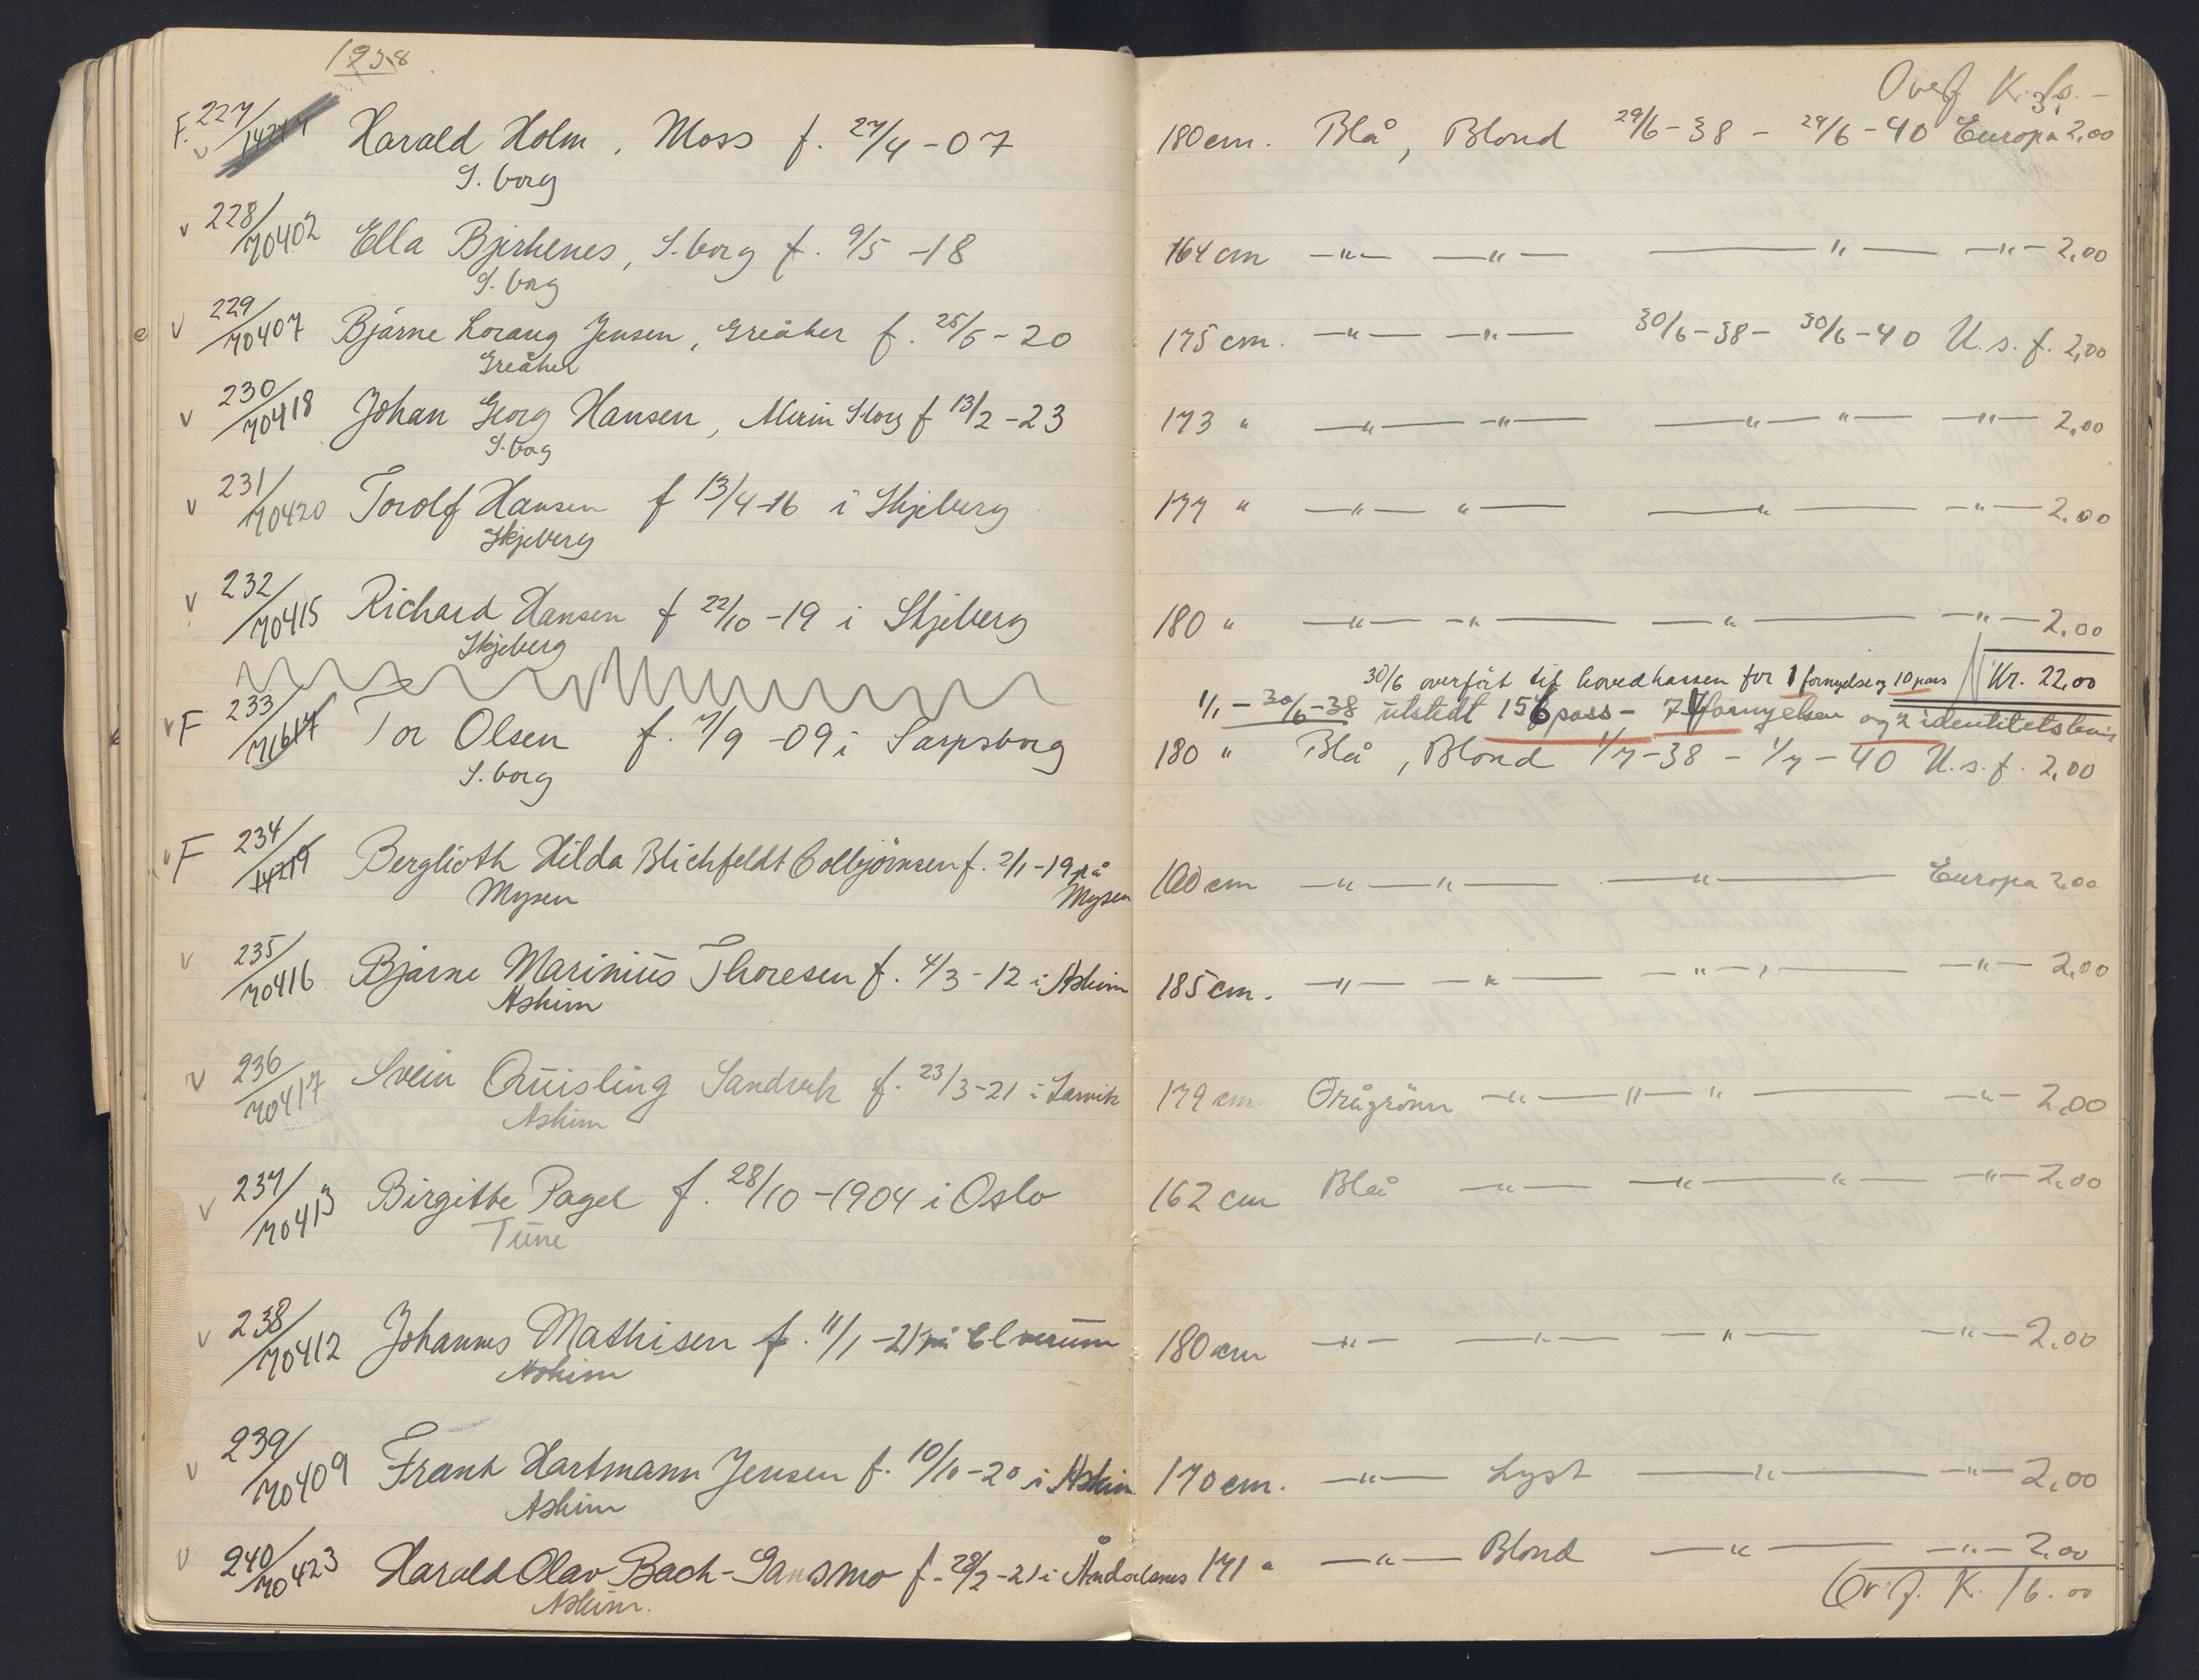 1938
F. 227/ Harald Holm, Moss f. 27/4-07 180 cm. Blå, Blond 29/6-38 - 29/6-40 Europa 2,00
S.borg
v 228/70402 Ella Bjerkenes, S.borg f. 9/5-18 164 cm —"— —"— ——"— —"— 2,00
S.borg
v 229/70407 Bjárne Lorang Jensen, Greåker f. 25/5-20 175 cm. —"— —"— 30/6-38 - 30/6-40 U.s.f. 2,00
Greåker
v 230/70418 Johan Georg Hansen, f 13/2-23 173 " —"— —"— —"—"— —"— 2,00
S.borg
v 231/70420 Torolf Hansen f 13/4-16 i Skjeberg 177 " —"— "— —"— —"— 2,00
Skjeberg
v 232/70415 Richard Hansen f 22/10-19 i Skjeberg 180 " —"— —"— —"— —"— 2,00
Skjeberg
30/6 overført til hovedkassen for 1 fornyelse og 10 pass Kr. 22,00
1/1 - 30/6-38 utstedt 156 pass - 74 fornyelser og 2 identitetsbevis
v F 233/71617 Tor Olsen f. 7/9-09 i Sarpsborg 180 " Blå, Blond 1/7-38 - 1/7-40 U.s.f. 2,00
S.borg
v F 234/14219 Berglioth Hilda Blichfeldt Colbjörnsen f. 2/1-19 på Mysen cm —"— "— —"— Europa 2,00
Mysen
v 235/70416 Bjarne Marinius Thoresen f. 4/3-12 i Askim 185 cm. —"— —"— —"— —"— 2,00
Askim
v 236/70417 Svein Quisling Sandvik f. 23/3-21 i Larvik 179 cm Grågrönn —"— "—"— —"— 2,00
Askim
v 237/70413 Birgitte Pagel f. 28/10-1904 i Oslo 162 cm Blå —"— —"—"— —"— 2,00
Tune
v 238/70412 Johannes Mathisen f. 11/1-21 på Elverum 180 cm —"— —"— —"— —"— 2,00
Askim
v 239/70409 Frank Hartmann Jensen f. 10/10-20 i Askim 170 cm. —"— Lyst —"— —"— 2,00
Askim
v 240/70423 Harald Olav Bach-Gansmo f. 28/2-21 i Åndalsnes 171 " —"— Blond —"— —"— 2,00
Askim.
Overf. K. 16.00